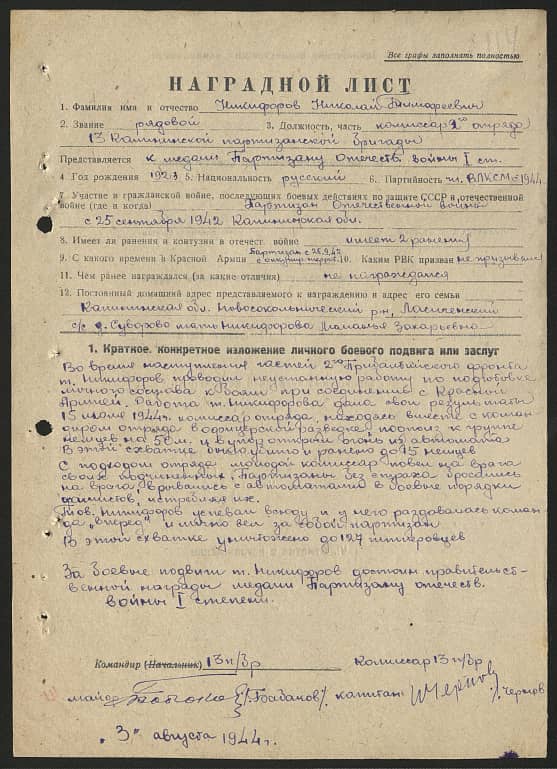 Все графы заполнять полностью
НАГРАДНОЙ ЛИСТ
1. Фамилия имя и отчество Никифоров Николай Тимофеевич
2. Звание рядовой 3. Должность, часть комиссар 2го отряда
13 Калининской партизанской бригады
Представляется к медали Партизану Отечеств войны I ст.
4. Год рождения 1923 5. Национальность русский 6. Партийность чл. ВЛКСМ с 1944
7. Участие в гражданской войне, последующих боевых действиях по защите СССР и отечественной
войне (где и когда) Партизан Отечественной войны
с 25 сентября 1942 Калининская обл.
8. Имеет ли ранения и контузии в отечест. войне имеет 2 ранения
9. С какого времени в Красной Армии Партизан с 25.9.42 с оккупир. террит. 10. Каким РВК призван не призывался
11. Чем ранее награждался (за какие отличия) не награждался
12. Постоянный домашний адрес представляемого к награждению и адрес его семьи
Калининская обл. Новосокольнический р-н,
с/с д. Суворово мать Никифорова Маланья Захарьевна
1. Краткое, конкретное изложение личного боевого подвига или заслуг
Во время наступления частей 2го Прибалтийского фронта
т. Никифоров проводил неустанную работу по подготовке
личного состава к боям при соединении с Красной
Армией. Работа т. Никифорова дала свои результаты
15 июля 1944г. комиссар отряда, находясь вместе с коман-
диром отряда в офицерской разведке, подполз к группе
немцев на 5-8 м. и в упор открыл огонь из автомата
В этой схватке было убито и ранено до 15 немцев
С подходом отряда молодой комиссар повел на врага
своих подчиненных. Партизаны без страха бросались
на врага и врывались с автоматами в боевые порядки
фашистов, истребляя их.
Тов. Никифоров успевал всюду и у него раздавалась коман-
да "вперед" и лично вел за собой партизан
В этой схватке уничтожено до 127 гитлеровцев
За боевые подвиги т. Никифоров достоин правительст-
венной награды медали Партизану отечеств.
войны I степени.
Командир (Начальник) 13 п/бр Комиссар 13 п/бр
майор /Бабаков/. капитан /. Чернов
"3" августа 1944 г.